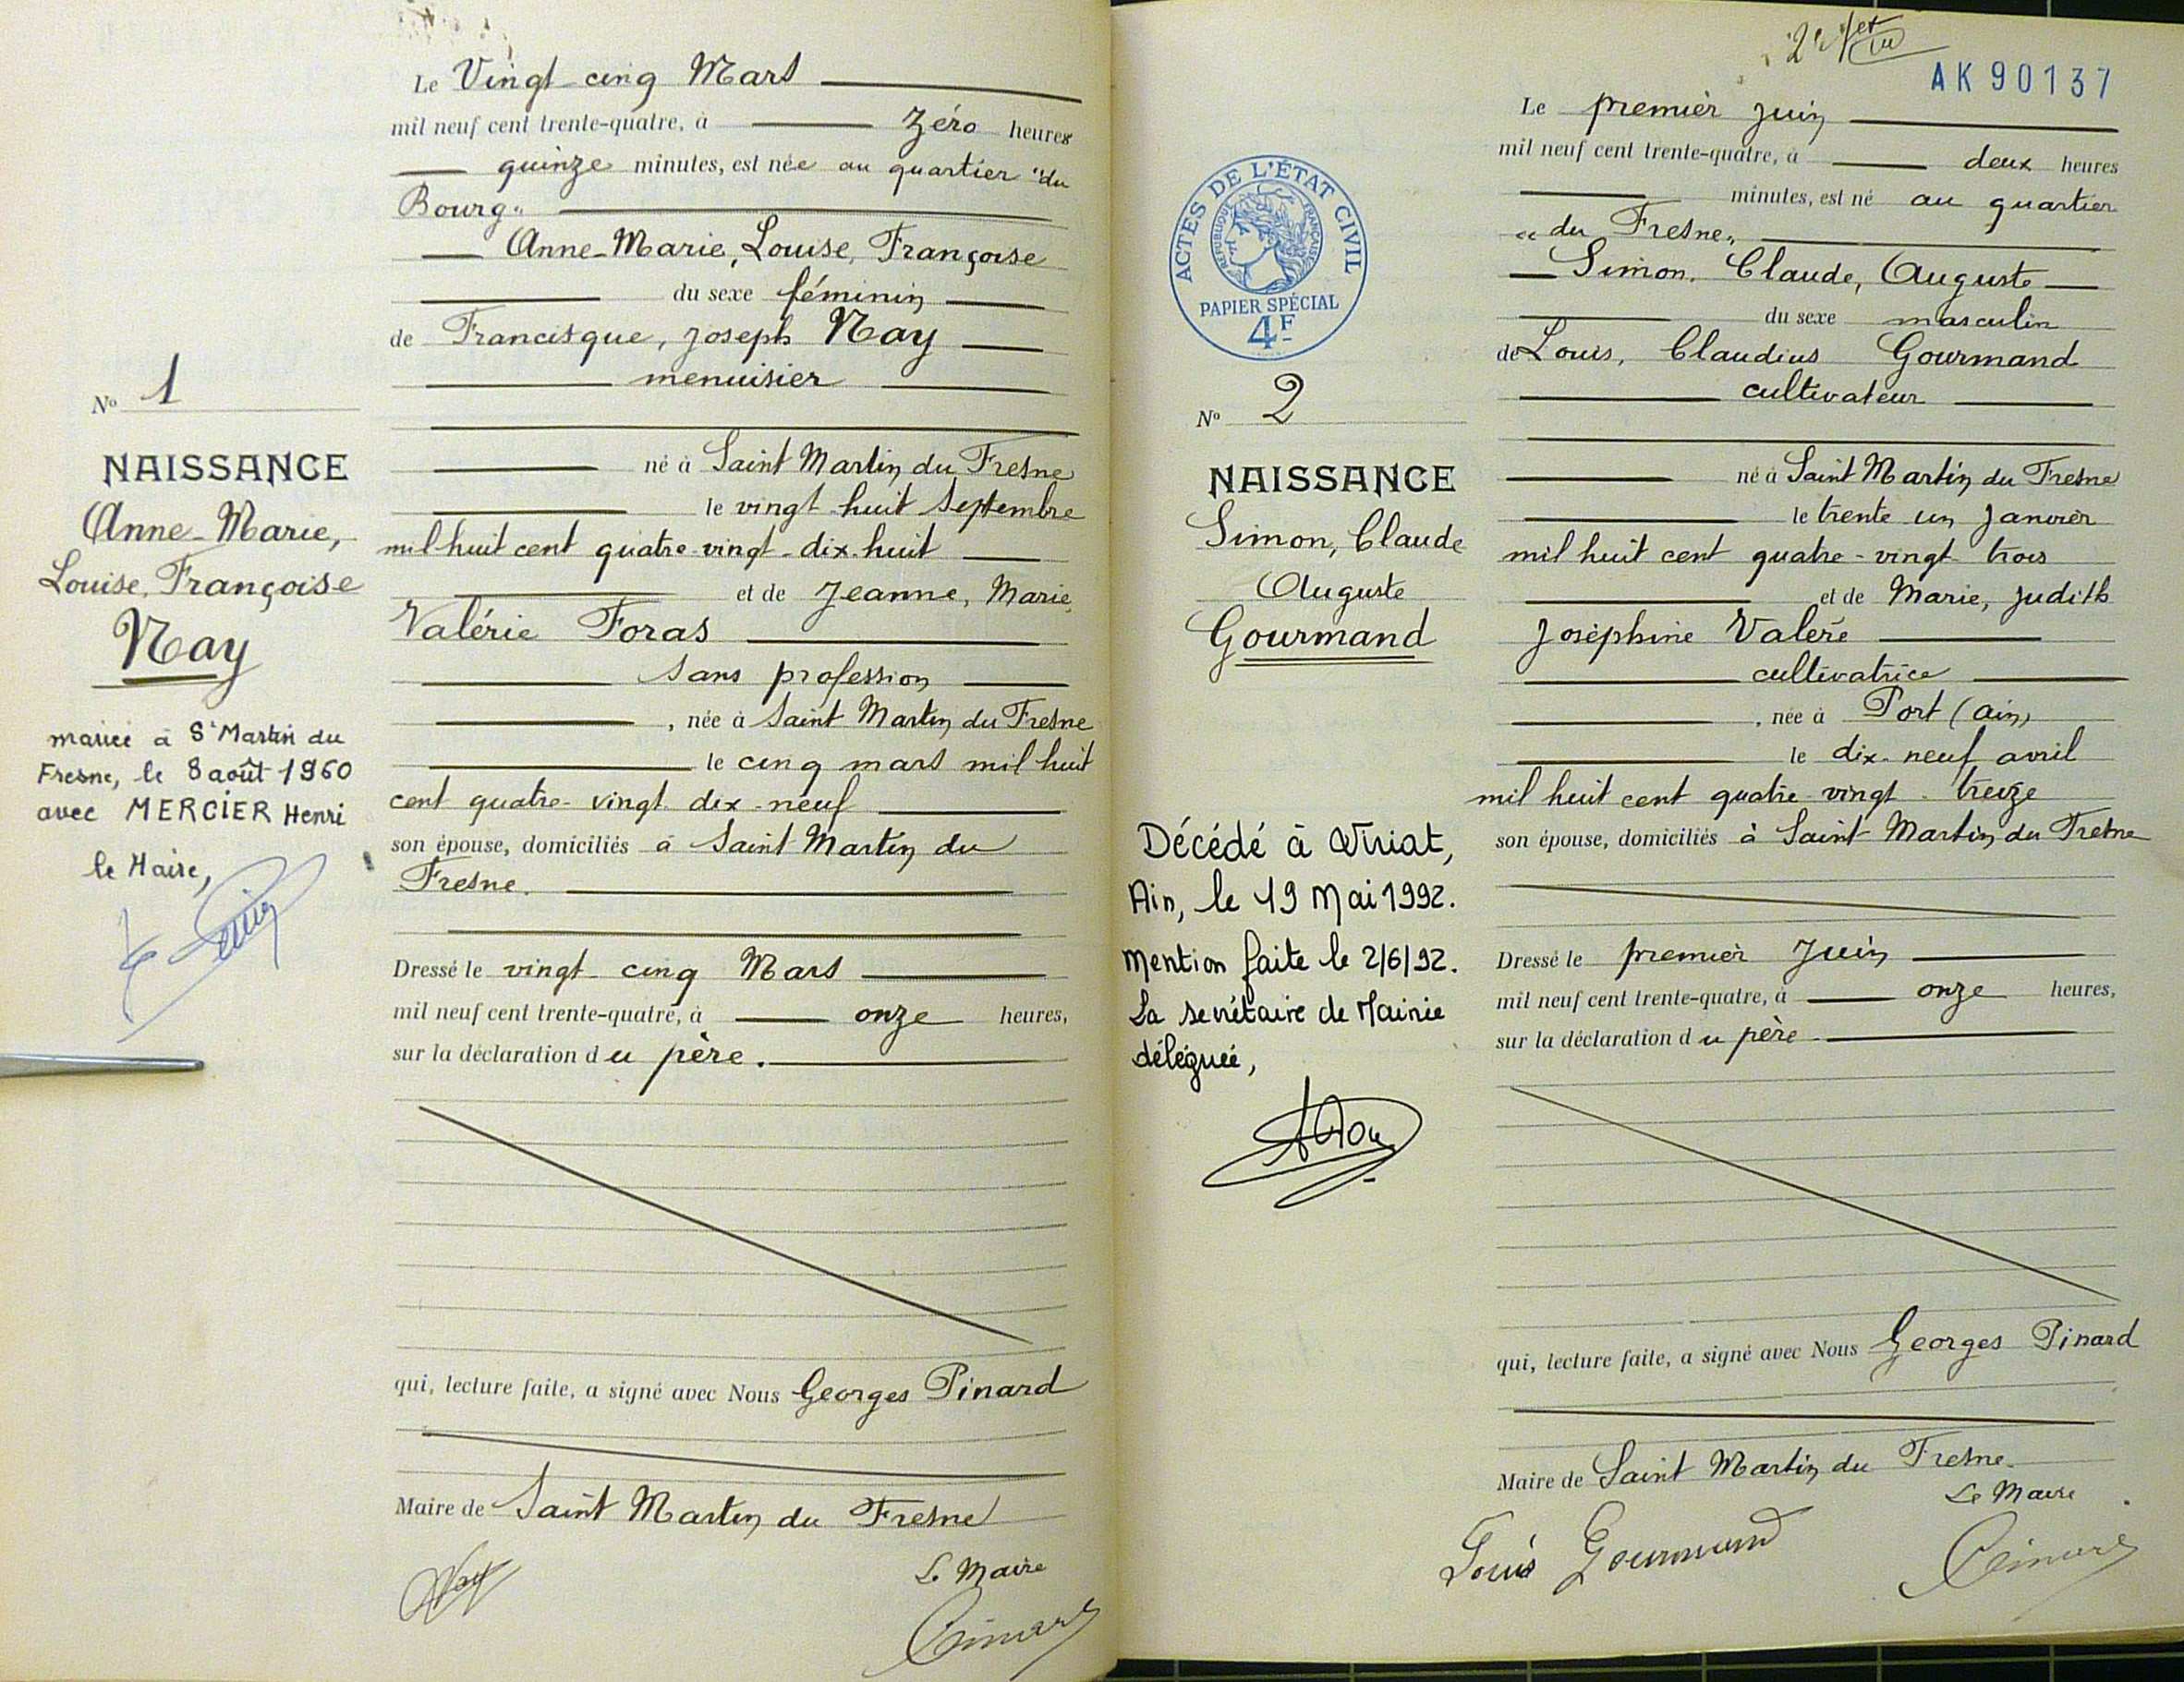 Le Vingt-cinq Mars
mil neuf cent trente-quatre, à zéro heures
quinze minutes, est née au quartier "du
Bourg"
Anne-Marie, Louise, Françoise
du sexe féminin
de Francisque, Joseph Nay
menuisier
né à Saint Martin du Fresne
le vingt huit Septembre
mil huit cent quatre-vingt-dix-huit
et de Jeanne, Marie,
Valérie Foras
sans profession
, née à Saint Martin du Fresne
le cinq mars mil huit
cent quatre-vingt dix-neuf
son épouse, domiciliés à Saint Martin du
Fresne.
Dressé le vingt cinq Mars
mil neuf cent trente-quatre, à onze heures,
sur la déclaration du père.
qui, lecture faite, a signé avec Nous Georges Pinard
Maire de Saint Martin du Fresne
Le Maire
Nay
Pinard
No 1
NAISSANCE
Anne-Marie,
Louise, Françoise
Nay
mariée à St Martin du
Fresne, le 8 août 1960
avec MERCIER Henri
le Maire,
AK90137
Le premier Juin
mil neuf cent trente-quatre, à deux heures
minutes, est né au quartier
"du Fresne"
Simon, Claude, Auguste
du sexe masculin
de Louis, Claudius Gourmand
cultivateur
né à Saint Martin du Fresne
le trente un Janvier
mil huit cent quatre-vingt trois
et de Marie, Judith
Joséphine Valere
cultivatrice
, née à Port (Ain)
le dix-neuf avril
mil huit cent quatre-vingt-treize
son épouse, domiciliés à Saint Martin du Fresne
Dressé le premier Juin
mil neuf cent trente-quatre, à onze heures,
sur la déclaration du père
qui, lecture faite, a signé avec Nous Georges Pinard
Maire de Saint Martin du Fresne.
Le Maire
Louis Gourmand
Pinard
ACTES DE L'ÉTAT CIVIL
RÉPUBLIQUE FRANÇAISE
PAPIER SPÉCIAL
4F
No 2
NAISSANCE
Simon, Claude
Auguste
Gourmand
Décédé à Viriat,
Ain, le 19 Mai 1992.
Mention faite le 2/6/92.
La secrétaire de Mairie
déléguée,